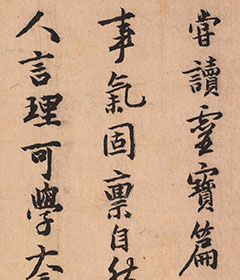 嘗讀靈寶篇
事氣固稟自然
人言理可學